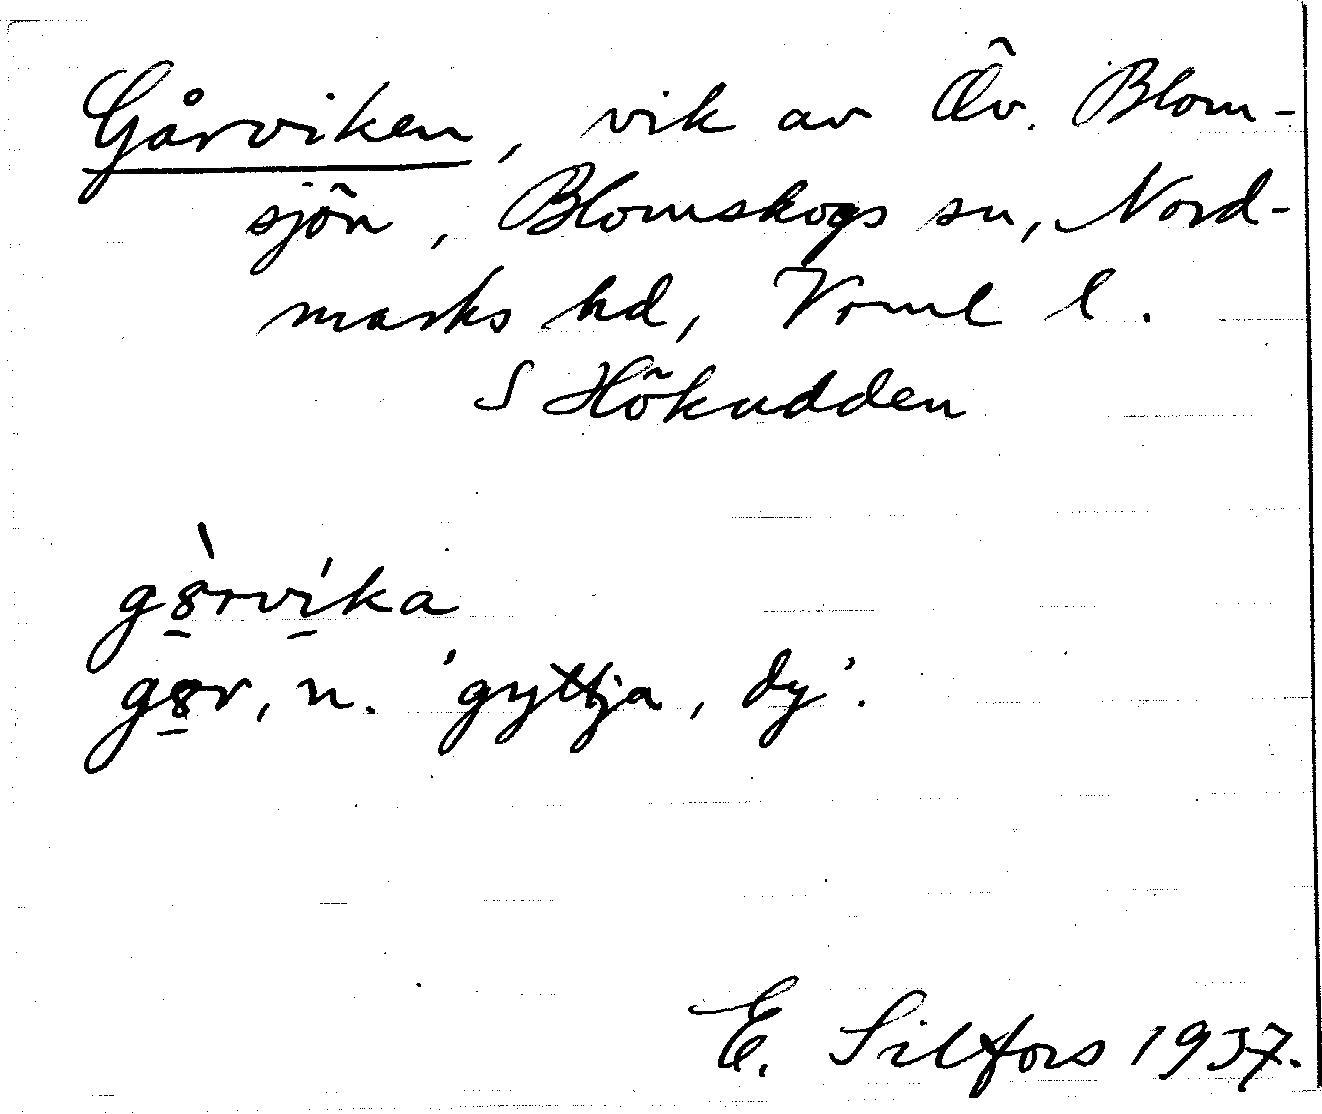 Gårviken, vik av Öv. Blom-
sjön, Blomskogs sn, Nord-
marks hd, Vrml l.
S Hökudden
gö̱̀rví̱ka
gö̱r, n. 'gyttja, dy'.
E. Silfors 1937.